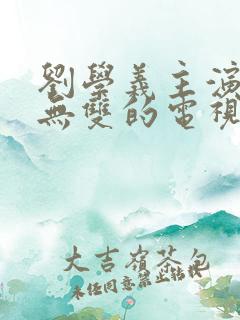 劉學義主演
無雙的電視
大吉嶺茶包
未经同意禁止转载